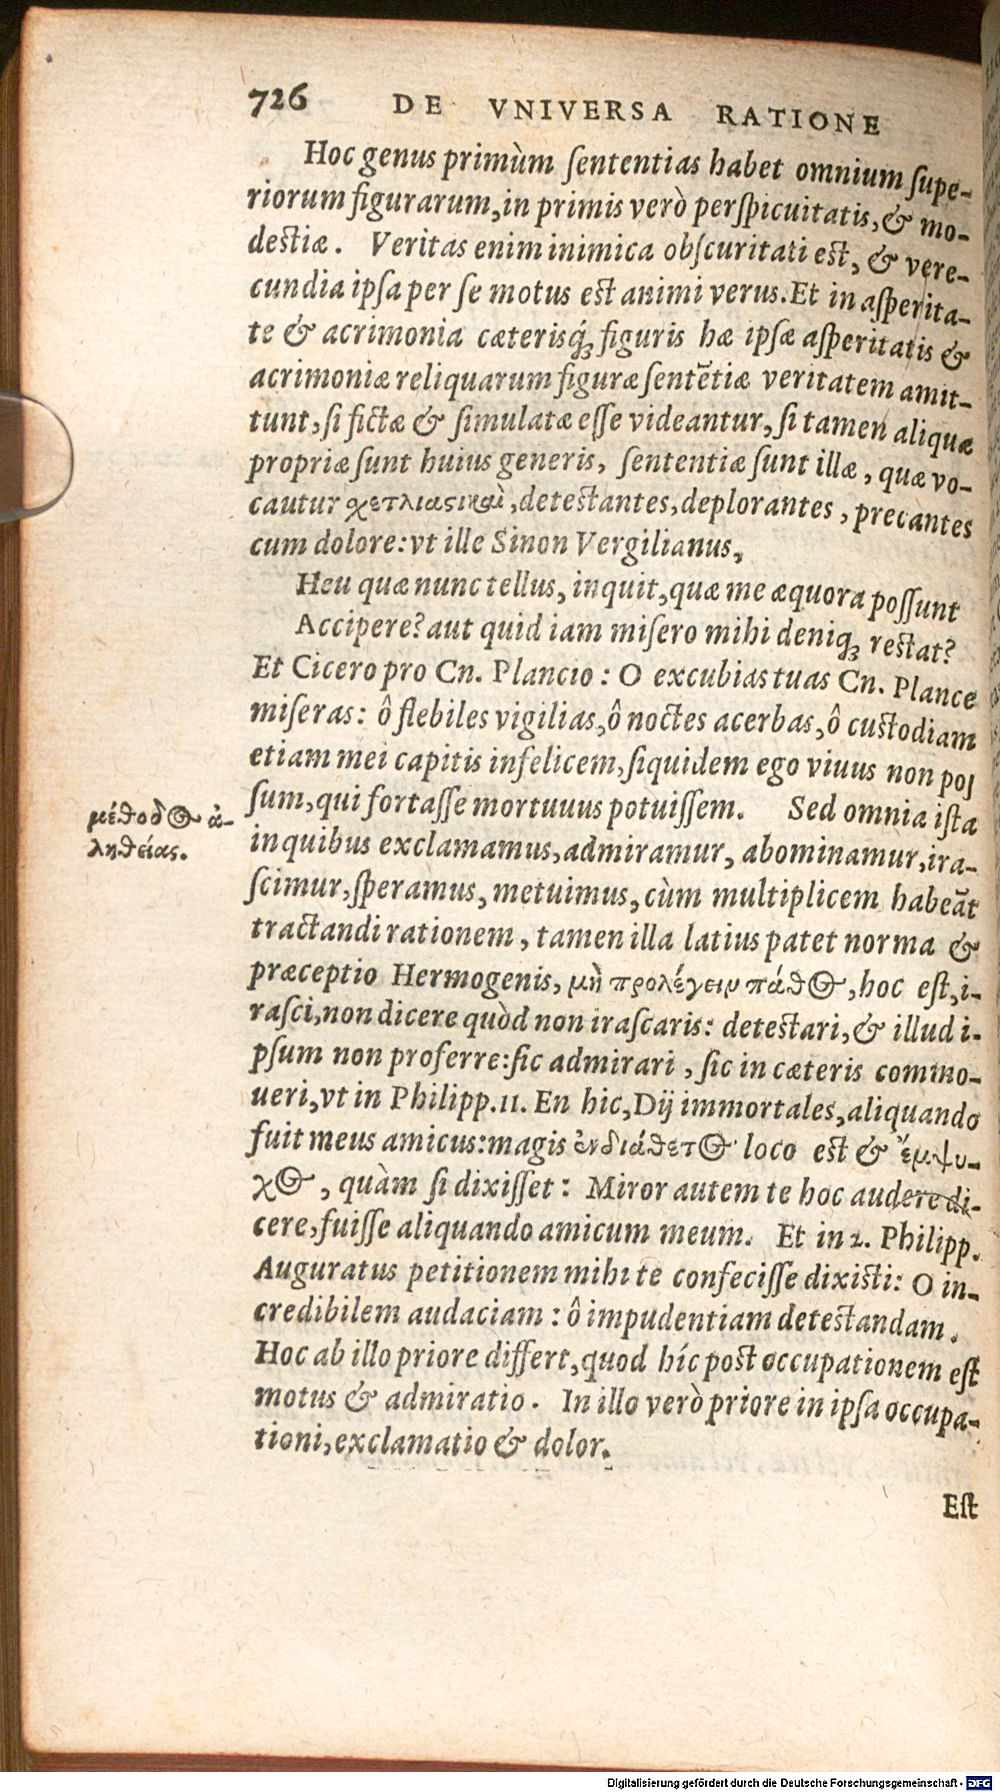 726 DE VNIVERSA RATIONE
Hoc genus primùm ſententias habet omnium ſupe-
riorum figurarum, in primis verò perſpicuitatis, & mo-
deſtiæ. Veritas enim inimica obſcuritati eſt, & vere-
cundia ipſa per ſe motus eſt animi verus. Et in aſperita-
te & acrimonia cæterisq́; figuris hæ ipſæ aſperitatis &
acrimoniæ reliquarum figuræ ſentẽtiæ veritatem amit-
tunt, ſi fictæ & ſimulatæ eſſe videantur, ſi tamen aliquæ
propriæ ſunt huius generis, ſententiæ ſunt illæ, quæ vo-
cautur σχετλιαστικαὶ, deteſtantes, deplorantes, precantes
cum dolore: vt ille Sinon Vergilianus,
Heu quæ nunc tellus, inquit, quæ me æquora poſſunt
Accipere? aut quid iam miſero mihi deniq; reſtat?
Et Cicero pro Cn. Plancio: O excubias tuas Cn. Plance
miſeras: ô flebiles vigilias, ô noctes acerbas, ô cuſtodiam
etiam mei capitis infelicem, ſiquidem ego viuus non poſ
ſum, qui fortaſſe mortuuus potuiſſem. Sed omnia iſta
μέθοδος ἀ-
ληθείας.
in quibus exclamamus, admiramur, abominamur, ira-
ſcimur, ſperamus, metuimus, cùm multiplicem habeãt
tractandi rationem, tamen illa latius patet norma &
præceptio Hermogenis, μὴ προλέγειν πάθος, hoc eſt, i-
raſci, non dicere quòd non iraſcaris: deteſtari, & illud i-
pſum non proferre: ſic admirari, ſic in cæteris commo-
ueri, vt in Philipp. 11. En hic, Dij immortales, aliquando
fuit meus amicus: magis ἐνδιάθετος loco eſt & ἔμψυ-
χος, quàm ſi dixiſſet: Miror autem te hoc audere di-
cere, fuiſſe aliquando amicum meum. Et in 2. Philipp.
Auguratus petitionem mihi te confeciſſe dixiſti: O in-
credibilem audaciam: ô impudentiam deteſtandam.
Hoc ab illo priore differt, quod híc poſt occupationem eſt
motus & admiratio. In illo verò priore in ipſa occupa-
tioni, exclamatio & dolor.
Eſt
Digitalisierung gefördert durch die Deutsche Forschungsgemeinschaft - DFG